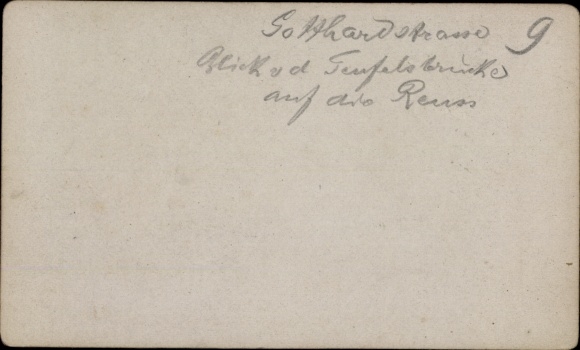 Gotthardstrasse 9
Blick v d Teufelsbrücke
auf die Reuss